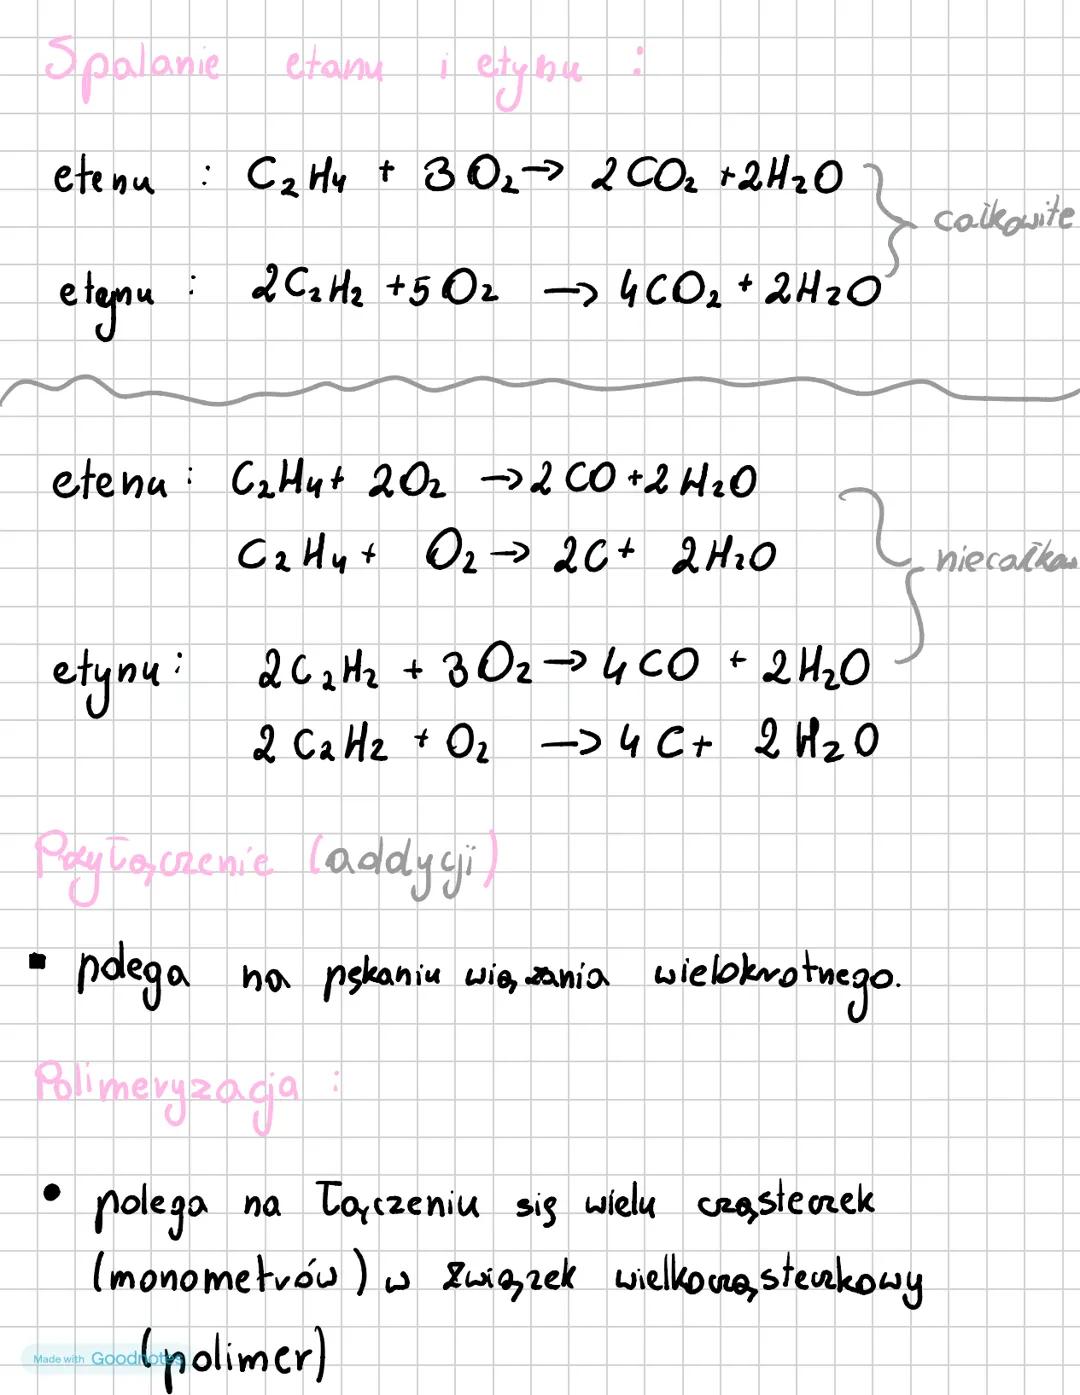 Spalanie etanu i etynu :
etenu : C₂H₄ + 3O₂ → 2CO₂ + 2H₂O
całkowite
etynu : 2C₂H₂ + 5O₂ → 4CO₂ + 2H₂O
etenu : C₂H₄ + 2O₂ → 2CO + 2H₂O
C₂H₄ + O₂ → 2C + 2H₂O
niecałkow
etynu : 2C₂H₂ + 3O₂ → 4CO + 2H₂O
2C₂H₂ + O₂ → 4C + 2H₂O
Przyłączenie (addycji)
▪ polega na pękaniu wiązania wielokrotnego.
Polimeryzacja :
• polega na łączeniu się wielu cząsteczek
(monometrów) w związek wielkocząsteczkowy
(polimer)
Made with Goodnotes